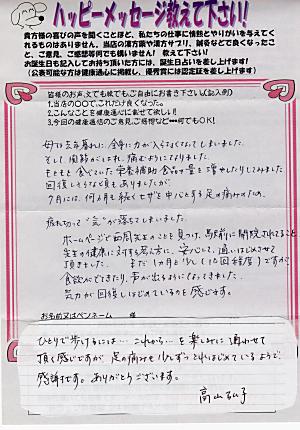 ハッピーメッセージ教えて下さい!
貴方様の喜びの声を聞くことほど、私たちの仕事に情熱とやりがいを与えてく
れるものはありません。当店の漢方薬や漢方サプリ、鍼灸などで良くなったこ
と、ご意見、ご感想等何でも構いません! 教えて下さい。
お誕生日も記入してお持ち頂いた方には、誕生日占いを差し上げます!
(公表可能な方は健康通心に掲載し、優秀賞には認定証を差し上げます)
皆様のお声、文でも絵でもご自由にお書き下さい。(記入例)
1.当店の〇〇で、これだけ良くなった。
2.こんなことを健康通心に載せて欲しい!
3.今回の健康通信のご意見、ご感想など…何でもOK!
母は去年暮れに、全身に力が入らなくなってしまいました。
そして関節がはれ、痛むようになりました。
もともと食べていた栄養補助食品の量を増やしたりしてみました
回復しそうな気もありましたが、
7月には、何ヶ月も続くヒザを中心とする足の痛みのため、
疲れ切って“気”が落ちてしまいました。
ホームページで西岡先生のことを見つけ、駅前に開院されてること
先生の健康に対する考え方に、安心して、通いはじめさせて
頂きました。まだ1ヵ月と少し(10回程度)ですが
食欲がでてきたり、声が出るようになってきました。
気力が回復しはじめているのを感じます。
お名前又はペンネーム 様
ひとりで歩けるには… これから… を楽しみに通わせて
頂く感じですが、足の痛みも少しずつとれはじめているようで、
感謝です。ありがとうございます。
高山弘子